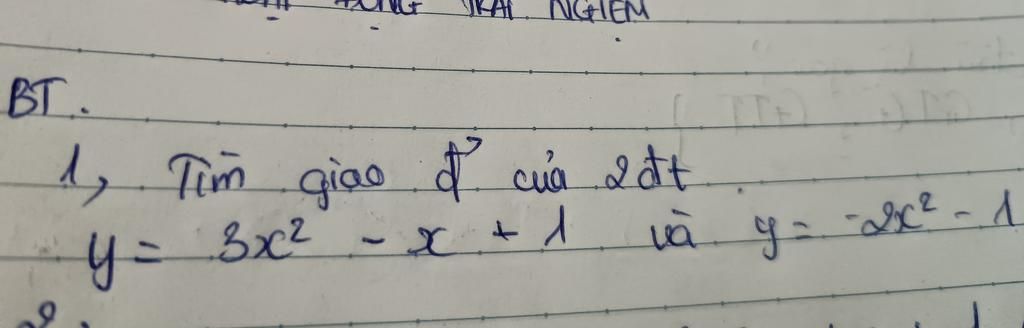 NGHIỆM
BT.
1, Tìm giao đ' của 2đt.
y = 3x² - x + 1 và y = -2x² - 1